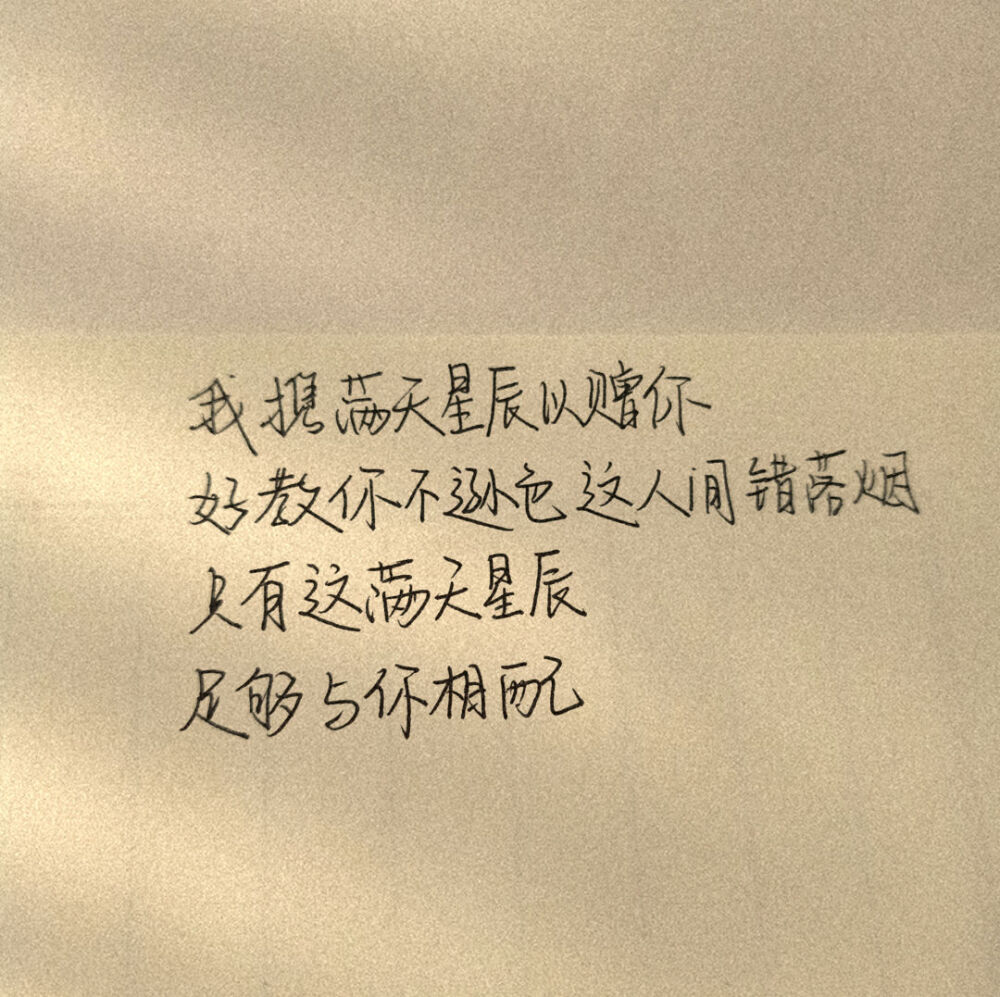 我携满天星辰以赠你
好教你不逊色这人间错落烟
只有这满天星辰
足够与你相配